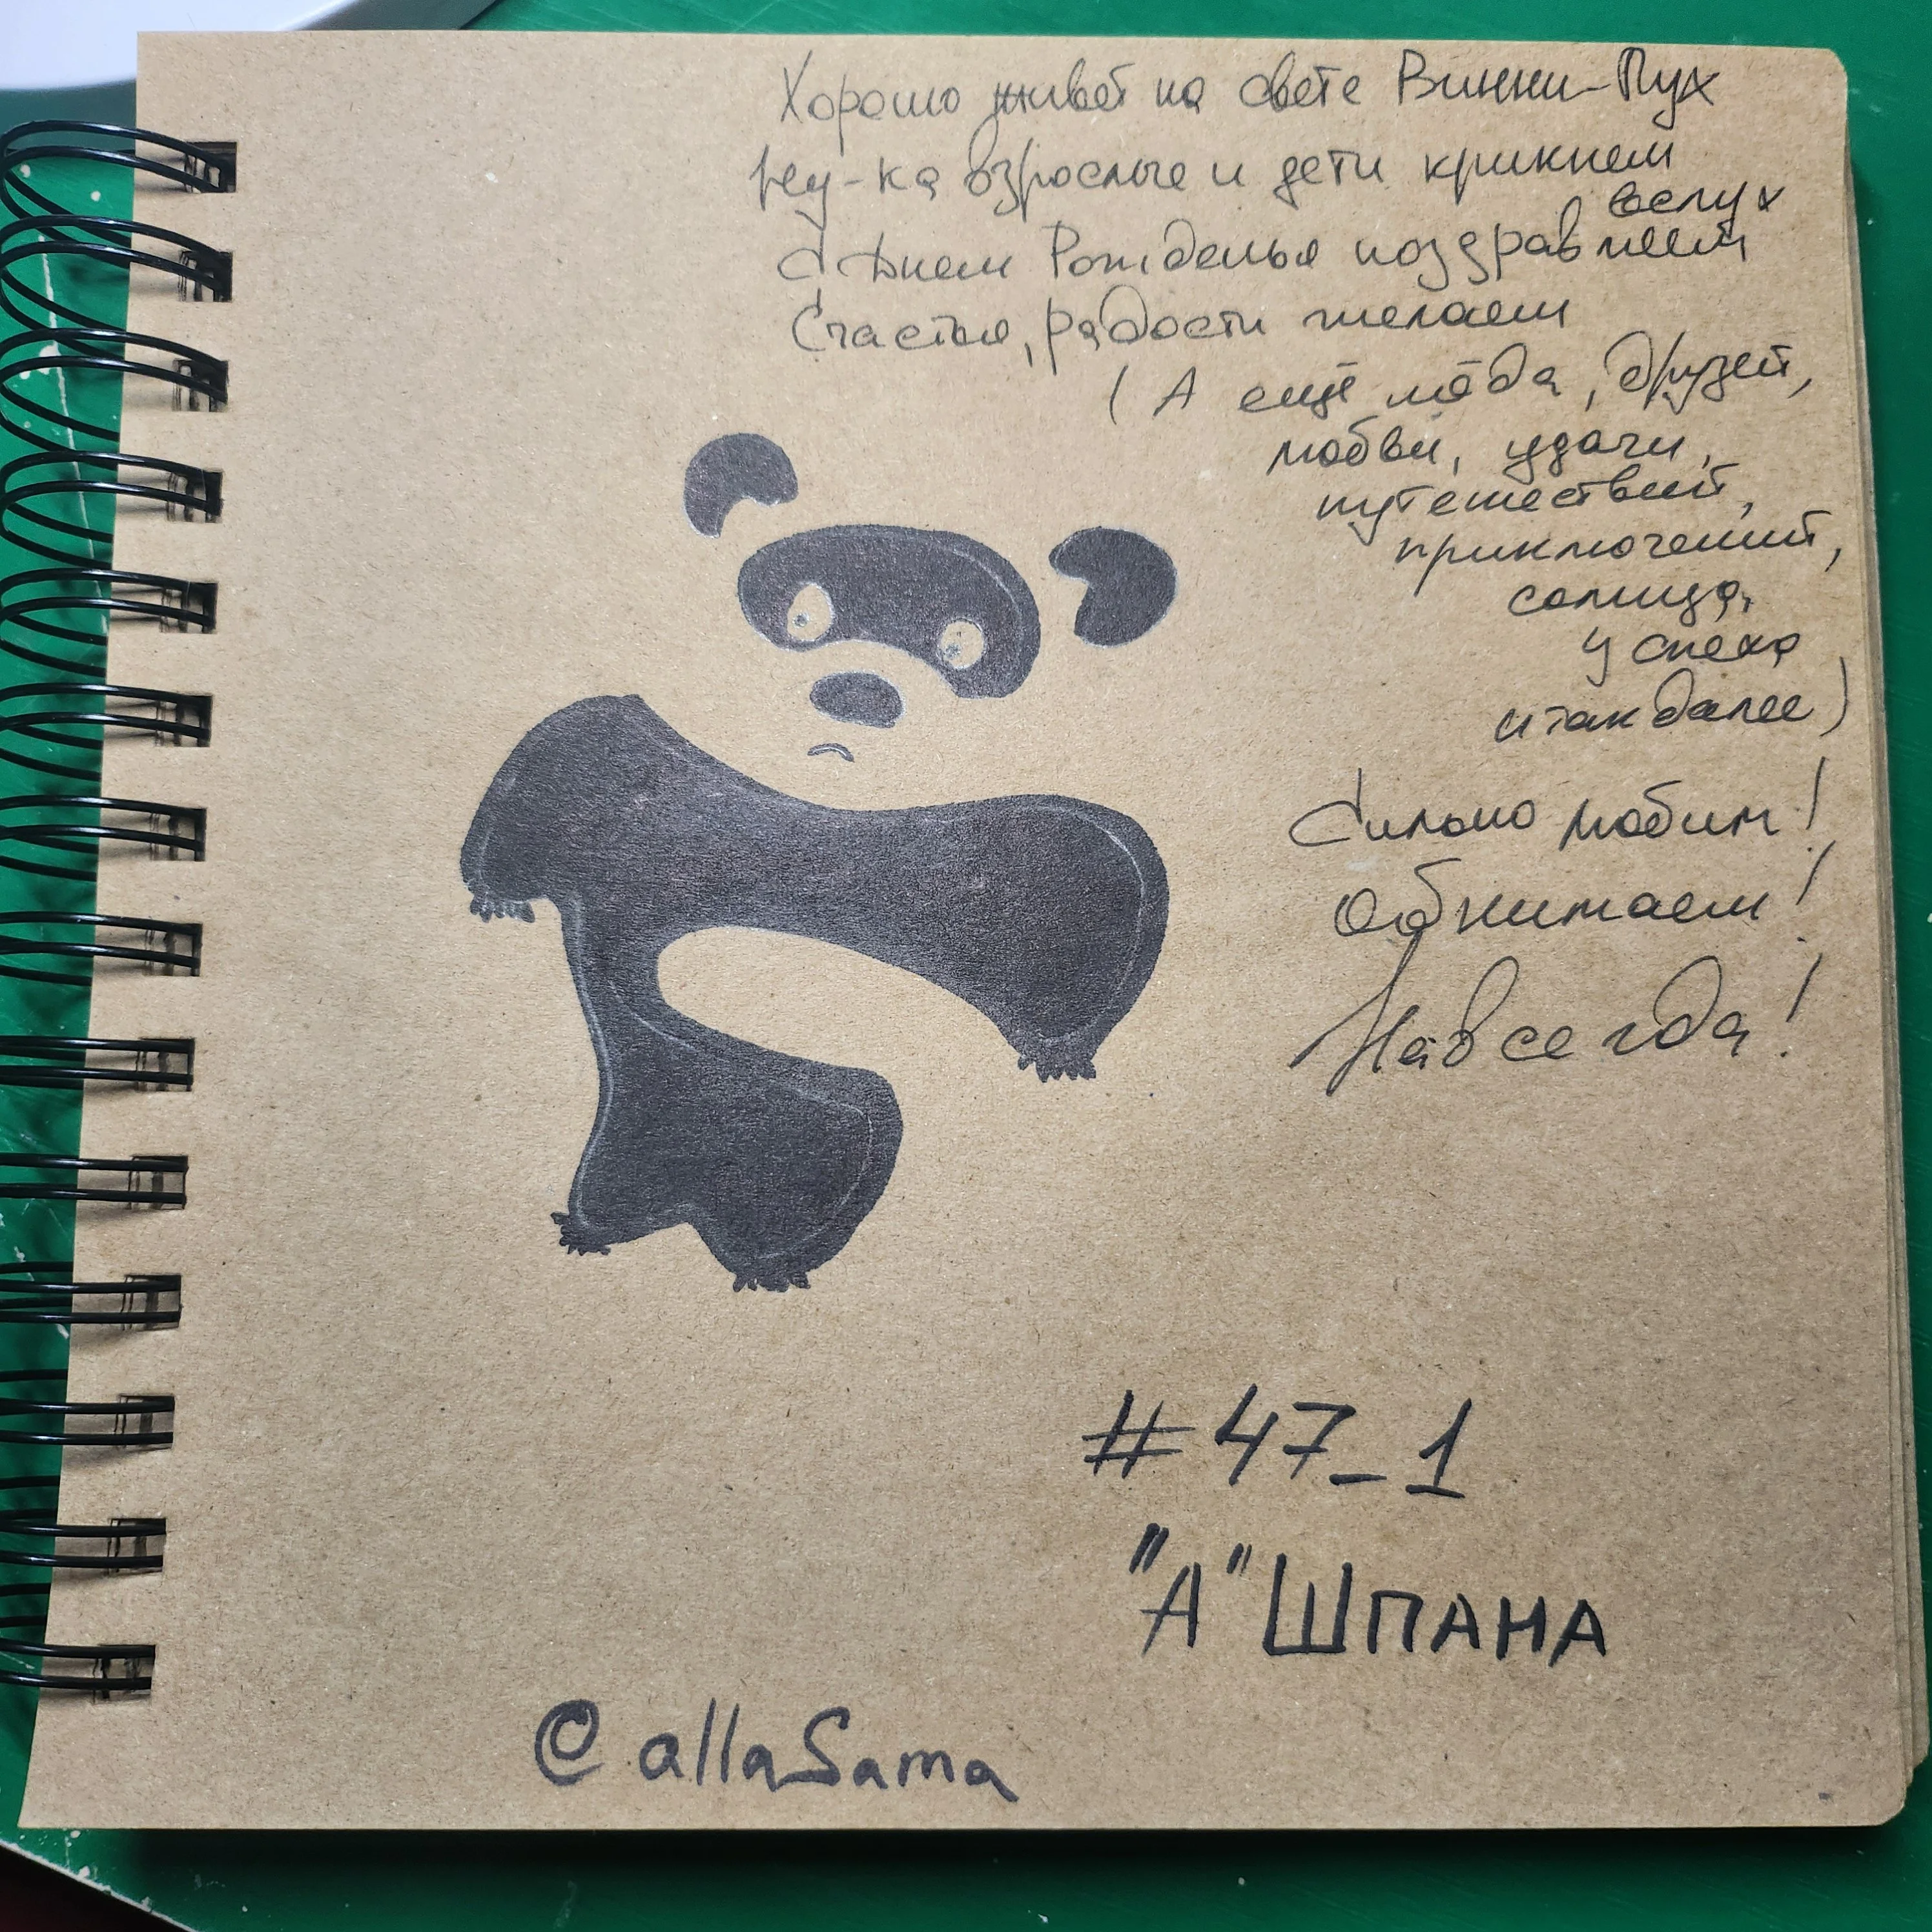 Хорошо живёт на свете Винни-Пух
ну-ка взрослые и дети крикнем
вслух
С Днем Рожденья поздравляем
Счастья, радости желаем
(А ещё мёда, друзей,
любви, удачи,
путешествий,
приключений,
солнца,
успеха
и так далее)
Сильно любим!
Обнимаем!
Навсегда!
#47_1
"А" ШПАНА
@allaSama